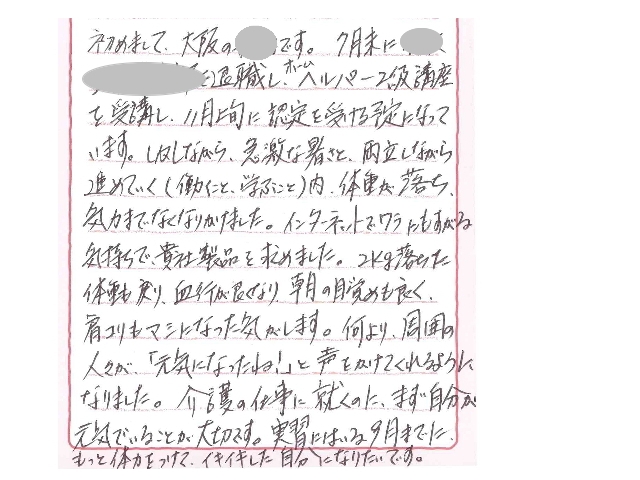 初めまして、大阪の です。7月末に
を退職し、ホームヘルパー2級講座
を受講し、11月上旬に認定を受ける予定になって
います。しかしながら、急激な暑さと、両立しながら
進めていく(働くこと、学ぶこと)内、体重が落ち、
気力までなくなりかけました。インターネットでワラにもすがる
気持ちで、貴社製品を求めました。2kg落ちた
体重も戻り、血行が良くなり朝の目覚めも良く、
肩コリもマシになった気がします。何より、周囲の
人々が、「元気になったね!」と声をかけてくれるように
なりました。介護の仕事に就くのに、まず自分が
元気でいることが大切です。実習にはいる9月までに、
もっと体力をつけて、イキイキした自分になりたいです。